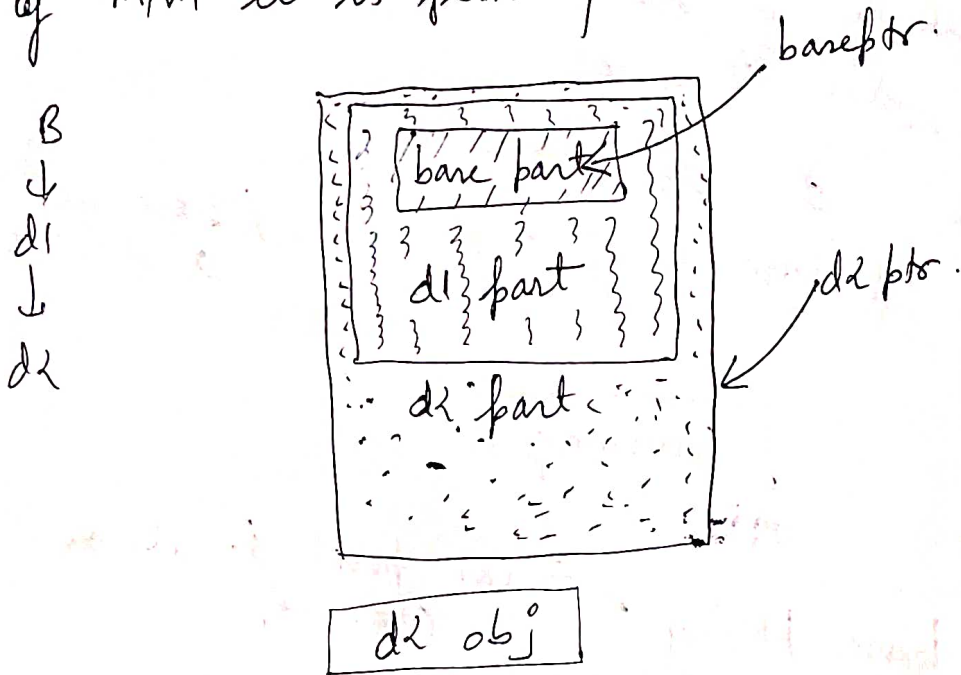 of M/M it is
baseptr.
B
↓
d1
↓
d2
base part
d1 part
d2 ptr.
d2 part
d2 obj